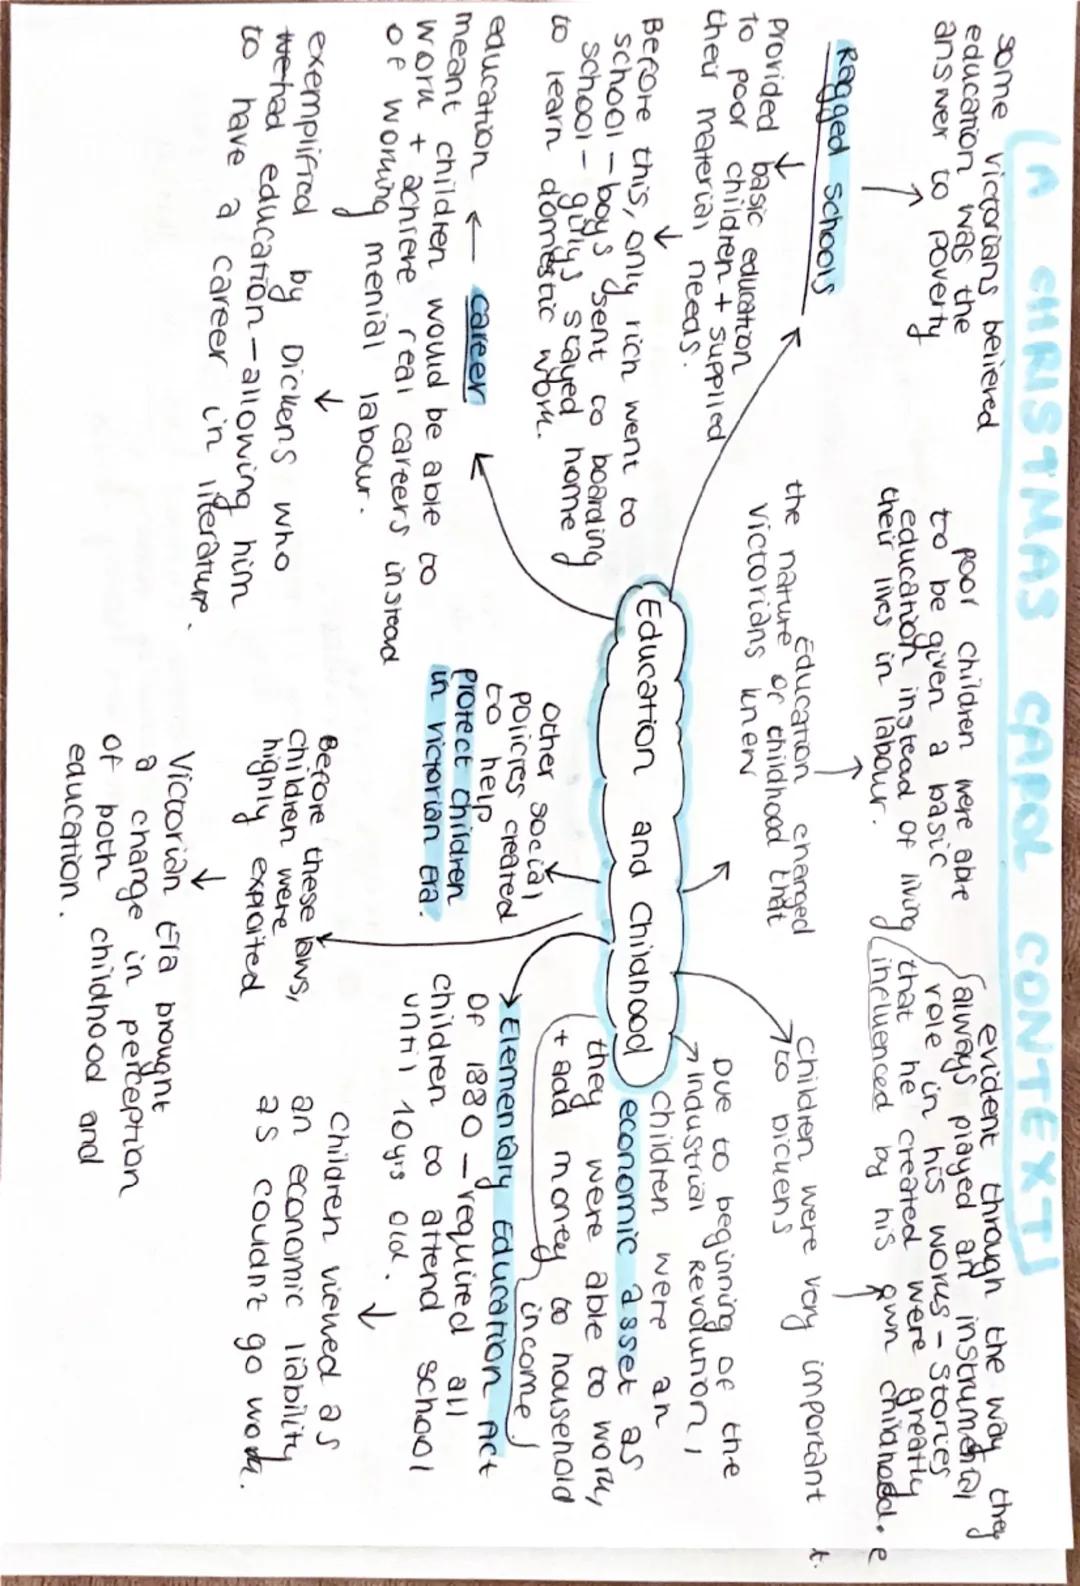 (A CHRISTMAS CAROL CONTEXT)
some victorians believed
education was the
answer to poverty
Ragged schools
Provided basic education
to poor children + supplied
their material needs.
Before this, only rich went to
school - boys sent to boarding
school - girls stayed home
to learn domestic work.
education ← career
meant children would be able to
work + achieve real careers instead
of working menial labour.
exemplified by Dickens who
had education - allowing him
to have a career in literature.
poor children were able
to be given a basic
education instead of living
their lives in labour.
Education changed
the nature of childhood that
victorians knew
Education and Childhood
other social
policies created
to help
protect children
in victorian era.
Before these laws,
children were
highly exploited
Victorian Era brought
a change in perception
of both childhood and
education.
evident through the way they
always played an instrumental
role in his works - stories
that he created were greatly
influenced by his own childhood.
Children were very important
to Dickens
Due to beginning of the
Industrial Revolution,
children were an
economic asset as
they were able to work,
+ add money to household
income
Elementary Education Act
of 1880 - required all
children to attend school
until 10yrs old.
Children viewed as
an economic liability
as couldn't go work.
t.
e